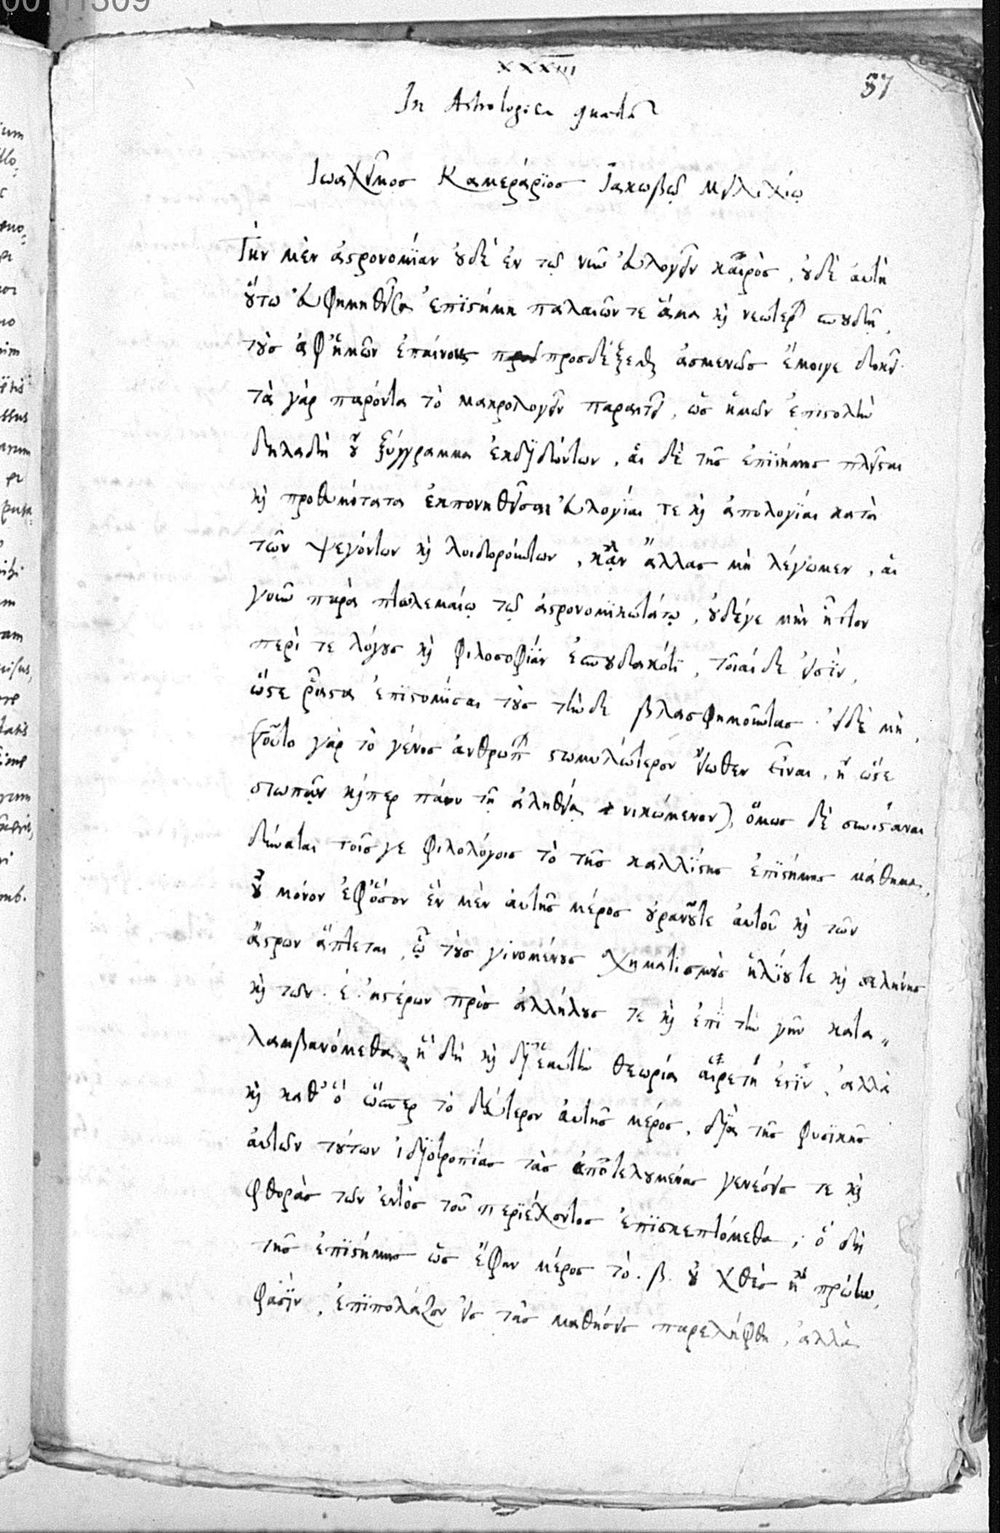 XXXIII
57
In Astrologica quaedā
Ἰωαχεῖμος Καμεράριος Ἰακώβῳ Μυλιχίῳ
Τὴν μὲν ἀστρονομίαν οὐδὲ ἐν τῷ νῦν εὐλογεῖν καιρὸς, οὐδὲ αὐτὴ
οὕτω εὐφημηθεῖσα ἐπιστήμη παλαιῶν τε ἅμα καὶ νεωτέρων σπουδῇ,
τοὺς ἀφ' ἡμῶν ἐπαίνους προσδέξεσθαι ἀσμενῶς ἔμοιγε δοκεῖ.
τὰ γὰρ παρόντα τὸ μακρολογεῖν παραιτεῖ, ὡς ἡμῶν ἐπιστολὴν
δηλαδὴ οὐ ξύγγραμμα ἐκδιδόντων, αἱ δὲ τῆς ἐπιστήμης πλεῖσται
καὶ προθυμότατα ἐκπονηθεῖσαι εὐλογίαι τε καὶ ἀπολογίαι κατὰ
τῶν ψεγόντων καὶ λοιδορούντων, κἂν ἄλλας μὴ λέγωμεν, αἱ
γοῦν παρὰ πτολεμαίῳ τῷ ἀστρονομικωτάτῳ, οὐδέγε μὴν ἧττον
περί τε λόγους καὶ φιλοσοφίαν ἐσπουδακότι, τοιαίδε εἰσὶν,
ὥστε ῥᾷστα ἐπιστομίσαι τοὺς τήνδε βλασφημοῦντας. εἰ δὲ μὴ,
(τοῦτο γὰρ τὸ γένος ἀνθρώπων στωμυλώτερον εἴωθεν εἶναι, ἢ ὥστε
σιωπᾷν καίπερ πάνυ τῇ ἀληθείᾳ νικώμενον), ὅμως δὲ συνιστάναι
δύναται τοῖσγε φιλολόγοις τὸ τῆς καλλίστης ἐπιστήμης μάθημα,
οὐ μόνον ἐφ' ὅσον ἓν μὲν αὐτῆς μέρος οὐρανοῦτε αὐτοῦ καὶ τῶν
ἄστρων ἅπτεται, ᾧ τοὺς γινομένους σχηματισμοὺς ἡλίουτε καὶ σελήνης
καὶ τῶν .ε. ἀστέρων πρὸς ἀλλήλους τε καὶ ἐπὶ τὴν γῆν κατα〃
λαμβανόμεθα, ἣ δὴ καὶ δι' ἑαυτὴν θεωρία αἱρετή ἐστιν, ἀλλὰ
καὶ καθ' ὃ ὥσπερ τὸ δεύτερον αὐτῆς μέρος, διὰ τῆς φυσικῆς
αὐτῶν τούτων ἰδιοτροπίας τὰς ἀποτελουμένας γενέσεις τε καὶ
φθορὰς τῶν ἐντὸς τοῦ περιέχοντος ἐπισκεπτόμεθα, ὃ δὴ
τῆς ἐπιστήμης ὡς ἔφην μέρος τὸ .β. οὐ χθὲς ἢ πρώην,
φασὶν, ἐπιπολάζον εἰς τὰς μαθήσεις παρελήφθη, ἀλλὰ